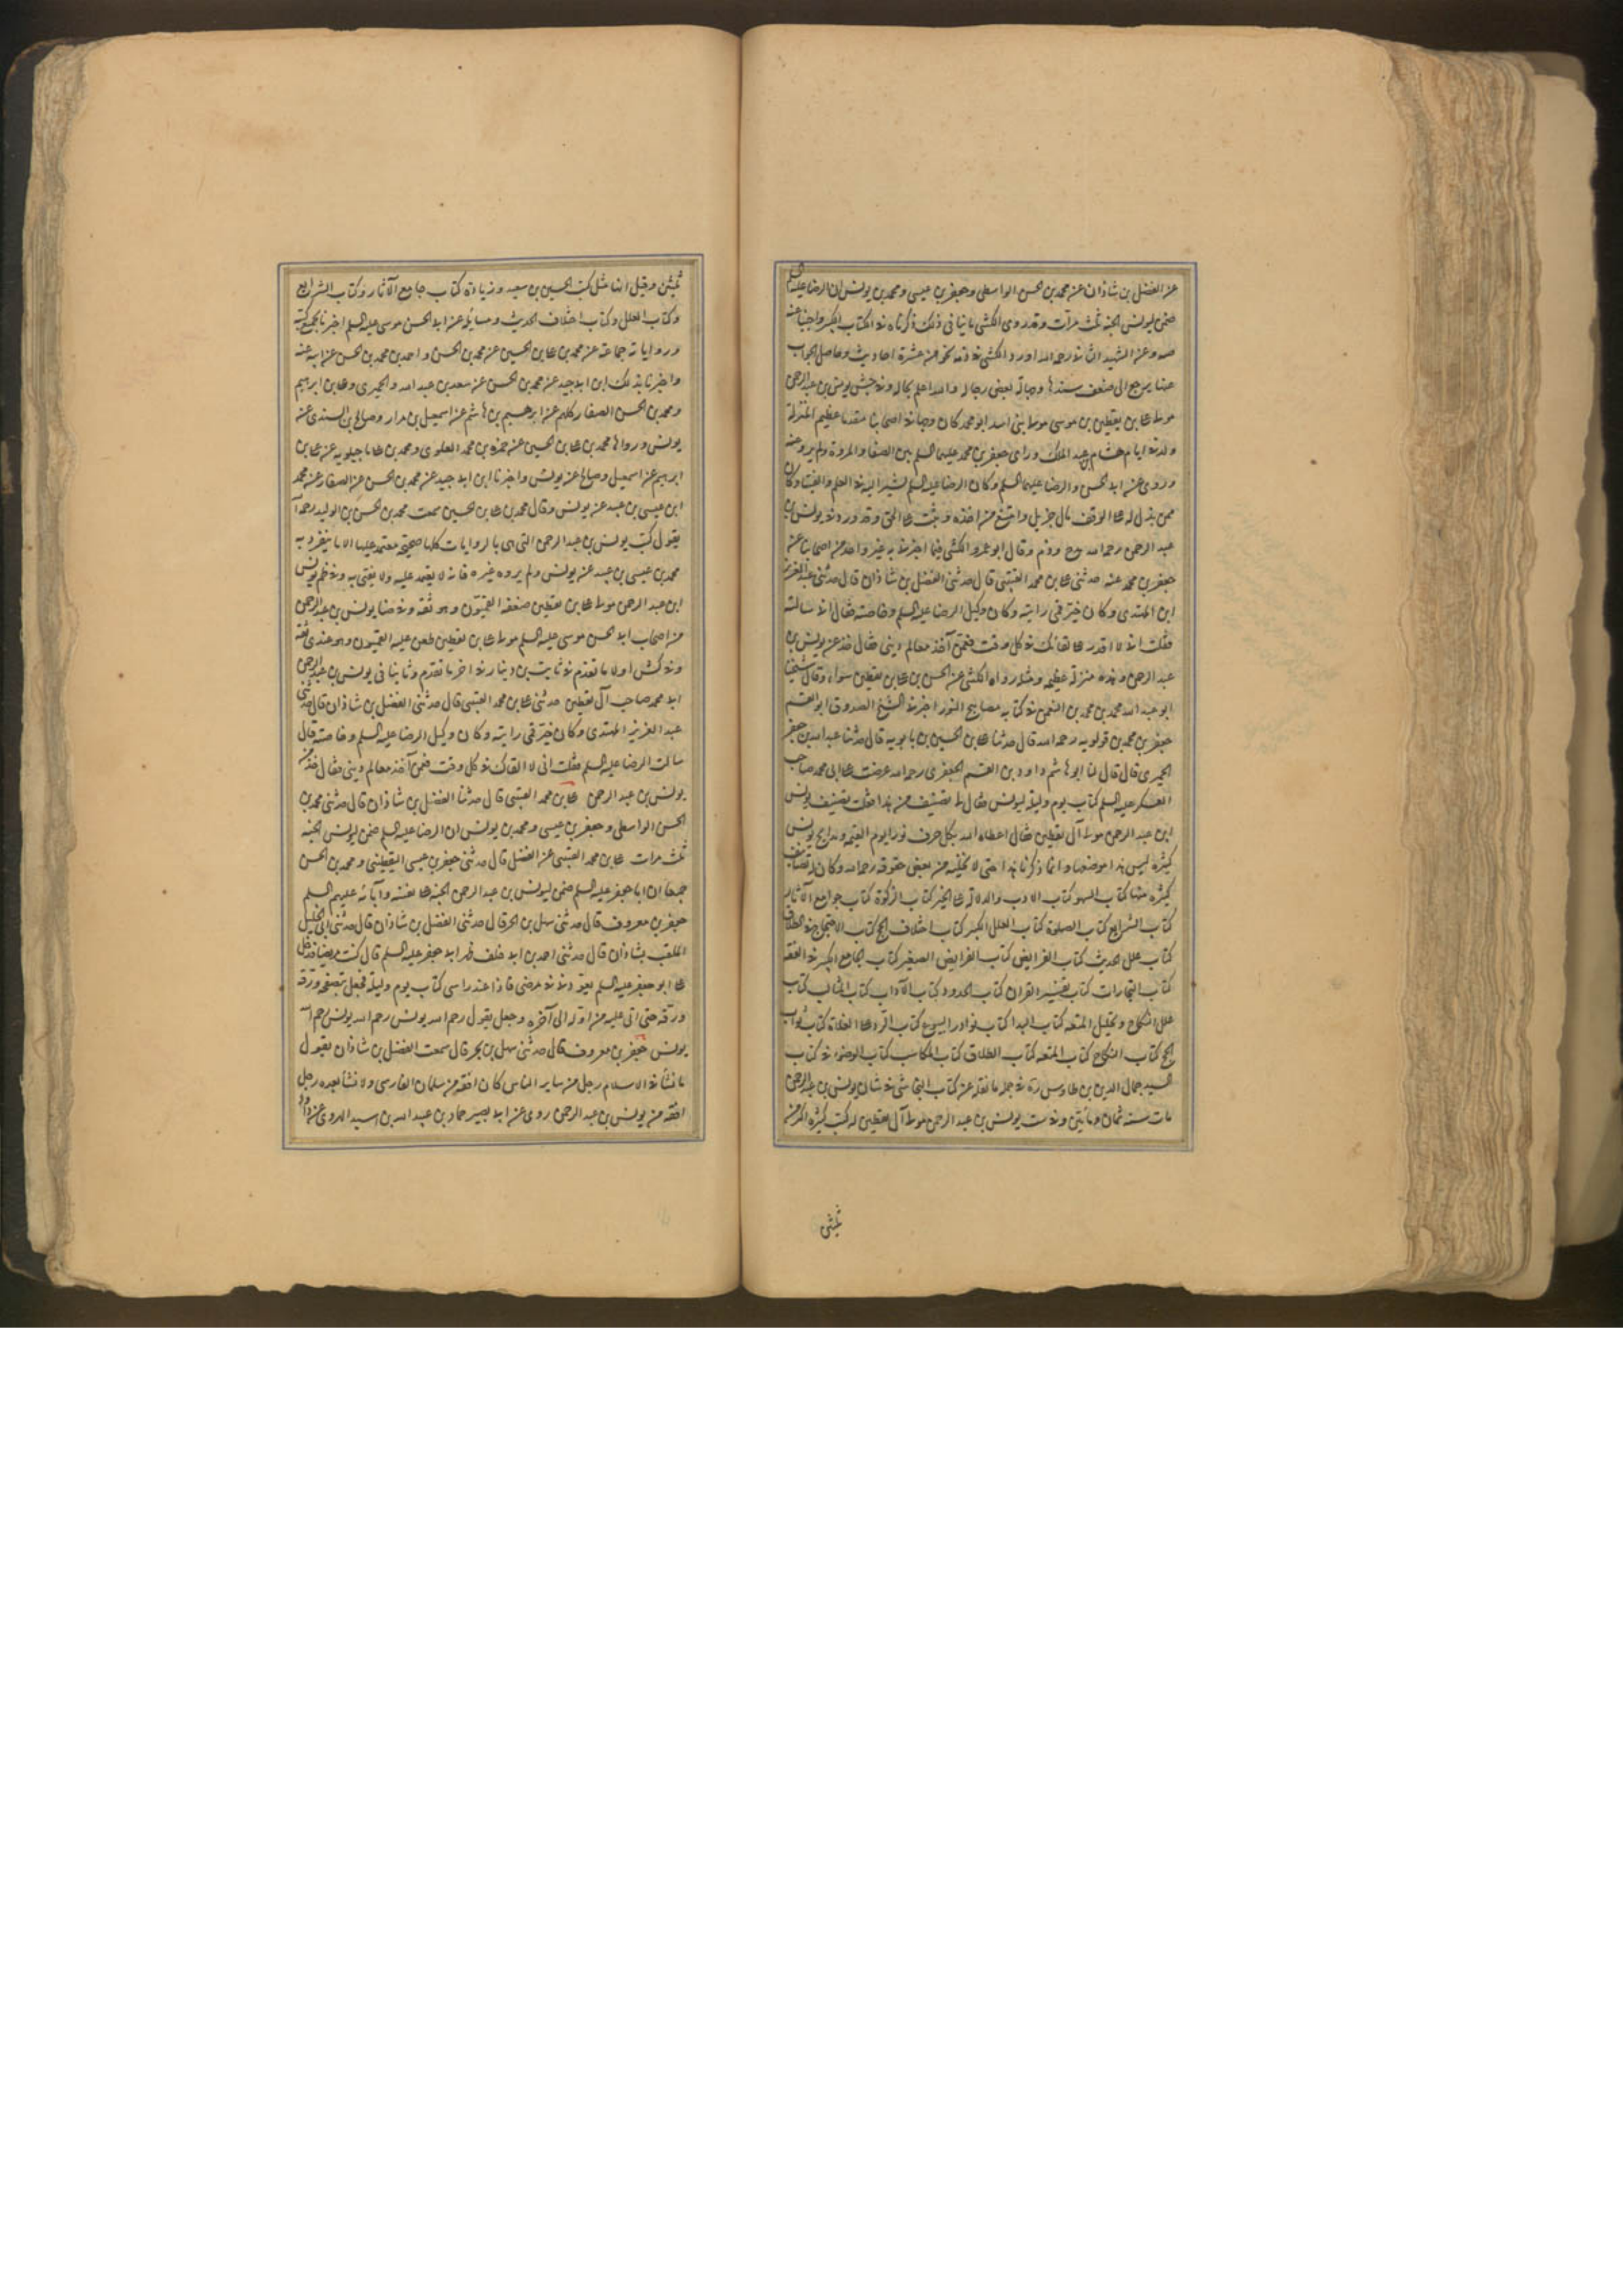 عن الفضل بن شاذان عن محمد بن الحسن الواسطى وجعفر بن عيسى ومحمد بن يونس ان الرضا عليه السلم
ضمن ليونس الجنة ثلث مرات وقد روى الكشى ما ينافى ذلك ذكرناه فى الكتاب الكبير واجبنا عنه
صه وعن الشهيد الثانى رحمه الله اورد الكشى فى ذمه نحو من عشرة احاديث وحاصل الجواب
عنها يرجع الى ضعف سندها وجهالة بعض رجالها والله اعلم بحاله وفى جش يونس بن عبد الرحمن
مولى على بن يقطين بن موسى مولى بنى اسد ابو محمد كان وجها فى اصحابنا متقدما عظيم المنزلة
ولد فى ايام هشام بن عبد الملك وراى جعفر بن محمد عليهما السلم بين الصفا والمروة ولم يرو عنه
وروى عن ابى الحسن والرضا عليهما السلم وكان الرضا عليه السلم يشير اليه فى العلم والفتيا وكان
ممن بذل له على الوقف مال جزيل وامتنع من اخذه وثبت على الحق وقد ورد فى يونس بن
عبد الرحمن رحمه الله مدح وذم وقال ابو عمرو الكشى فيما اخبرنى به غير واحد من اصحابنا عن
جعفر بن محمد عنه حدثنى على بن محمد القتيبى قال حدثنى الفضل بن شاذان قال حدثنى عبد العزيز
ابن المهتدى وكان خير قمى رايته وكان وكيل الرضا عليه السلم وخاصته فقال انى سالته
فقلت انى لا اقدر على لقائك فى كل وقت فعمن آخذ معالم دينى فقال خذ عن يونس بن
عبد الرحمن وهذه منزلة عظيمة ومثله رواه الكشى عن الحسن بن على بن يقطين سواء وقال شيخنا
ابو عبد الله محمد بن محمد بن النعمان فى كتابه مصابيح النور اخبرنى الشيخ الصدوق ابو القسم
جعفر بن محمد بن قولويه رحمه الله قال حدثنا على بن الحسين بن بابويه قال حدثنا عبد الله بن جعفر
الحميرى قال قال لنا ابو هاشم داود بن القسم الجعفرى رحمه الله عرضت على ابى محمد صاحب
العسكر عليه السلم كتاب يوم وليلة ليونس فقال لى تصنيف من هذا فقلت تصنيف يونس
ابن عبد الرحمن مولى آل يقطين فقال اعطاه الله بكل حرف نورا يوم القيمة ومدايح يونس
كثيرة ليس هذا موضعها وانما ذكرنا هذا حتى لا نخليه من بعض حقوقه رحمه الله وكان له تصانيف
كثيرة منها كتاب السهو كتاب الادب والدلالة على الخير كتاب الزكوة كتاب جوامع الآثار
كتاب الشرايع كتاب الصلوة كتاب العلل الكبير كتاب اختلاف الحج كتاب الاحتجاج فى الطلاق
كتاب علل الحديث كتاب الفرايض كتاب الفرايض الصغير كتاب الجامع الكبير فى الفقه
كتاب التجارات كتاب تفسير القران كتاب الحدود كتاب الآداب كتاب المثالب كتاب
علل النكاح وتحليل المتعة كتاب البدا كتاب نوادر البيوع كتاب الرد على الغلاة كتاب ثواب
الحج كتاب النكاح كتاب المتعه كتاب الطلاق كتاب المكاسب كتاب الوضوء فى كتاب
السيد جمال الدين بن طاوس ره فى جملة ما نقله عن كتاب النجاشى فى شان يونس بن عبد الرحمن
مات سنة ثمان ومأتين وفى ست يونس بن عبد الرحمن مولى آل يقطين له كتب كثيرة اكثر من
ثلثين
ثلثين وقيل انها مثل كتب الحسين بن سعيد وزيادة كتاب جامع الآثار وكتاب الشرايع
وكتاب العلل وكتاب اختلاف الحديث ومسايله عن ابى الحسن موسى عليه السلم اخبرنا بجميع كتبه
ورواياته جماعة عن محمد بن على بن الحسين عن محمد بن الحسن واحمد بن محمد بن الحسن عن ابيه عنه
واخبرنا بذلك ابن ابى جيد عن محمد بن الحسن عن سعد بن عبد الله والحميرى وعلى بن ابرهيم
ومحمد بن الحسن الصفار كلهم عن ابرهيم بن هاشم عن اسمعيل بن مرار وصالح بن السندى عنه
يونس ورواها محمد بن على بن الحسين عن حمزة بن محمد العلوى ومحمد بن على ماجيلويه عن على بن
ابرهيم عن اسمعيل وصالح عن يونس واخبرنا ابن ابى جيد عن محمد بن الحسن عن الصفار عن محمد
ابن عيسى بن عبيد عن يونس وقال محمد بن على بن الحسين سمعت محمد بن الحسن بن الوليد رحمه الله
يقول كتب يونس بن عبد الرحمن التى هى بالروايات كلها صحيحة معتمد عليها الا ما ينفرد به
محمد بن عيسى بن عبيد عن يونس ولم يروه غيره فانه لا يعتمد عليه ولا يفتى به وفى ظم يونس
ابن عبد الرحمن مولى على بن يقطين ضعفه القميون وهو ثقة وفى ضا يونس بن عبد الرحمن
من اصحاب ابى الحسن موسى عليه السلم مولى على بن يقطين طعن عليه القميون وهو عندى ثقة
وفى كش اولا ما تقدم فى ثابت بن دينار فى اخر ما تقدم وثانيا فى يونس بن عبد الرحمن
ابى محمد صاحب آل يقطين حدثنى على بن محمد القتيبى قال حدثنى الفضل بن شاذان قال حدثنى
عبد العزيز المهتدى وكان خير قمى رايته وكان وكيل الرضا عليه السلم وخاصته قال
سالت الرضا عليه السلم فقلت انى لا القاك فى كل وقت فعمن آخذ معالم دينى فقال خذ من
يونس بن عبد الرحمن على بن محمد القتيبى قال حدثنا الفضل بن شاذان قال حدثنى محمد بن
الحسن الواسطى وجعفر بن عيسى ومحمد بن يونس ان الرضا عليه السلم ضمن ليونس الجنه
ثلث مرات على بن محمد القتيبى عن الفضل قال حدثنى جعفر بن عيسى اليقطينى ومحمد بن الحسن
جميعا ان ابا جعفر عليه السلم ضمن ليونس بن عبد الرحمن الجنه على نفسه وآبائه عليهم السلم
جعفر بن معروف قال حدثنى سهل بن بحر قال حدثنى الفضل بن شاذان قال حدثنى ابى الخليل
الملقب بشاذان قال حدثنى احمد بن ابى خلف ظئر ابى جعفر عليه السلم قال كنت مريضا فدخل
على ابو جعفر عليه السلم يعودنى فى مرضى فاذا عند راسى كتاب يوم وليلة فجعل يتصفحه ورقة
ورقة حتى اتى عليه من اوله الى آخره وجعل يقول رحم الله يونس رحم الله يونس رحم الله
يونس جعفر بن معروف قال حدثنى سهل بن بحر قال سمعت الفضل بن شاذان يقول
ما نشأ فى الاسلام رجل من ساير الناس كان افقه من سلمان الفارسى ولا نشأ بعده رجل
افقه من يونس بن عبد الرحمن روى عن ابى بصير حماد بن عبد الله بن اسيد الهروى عن داود